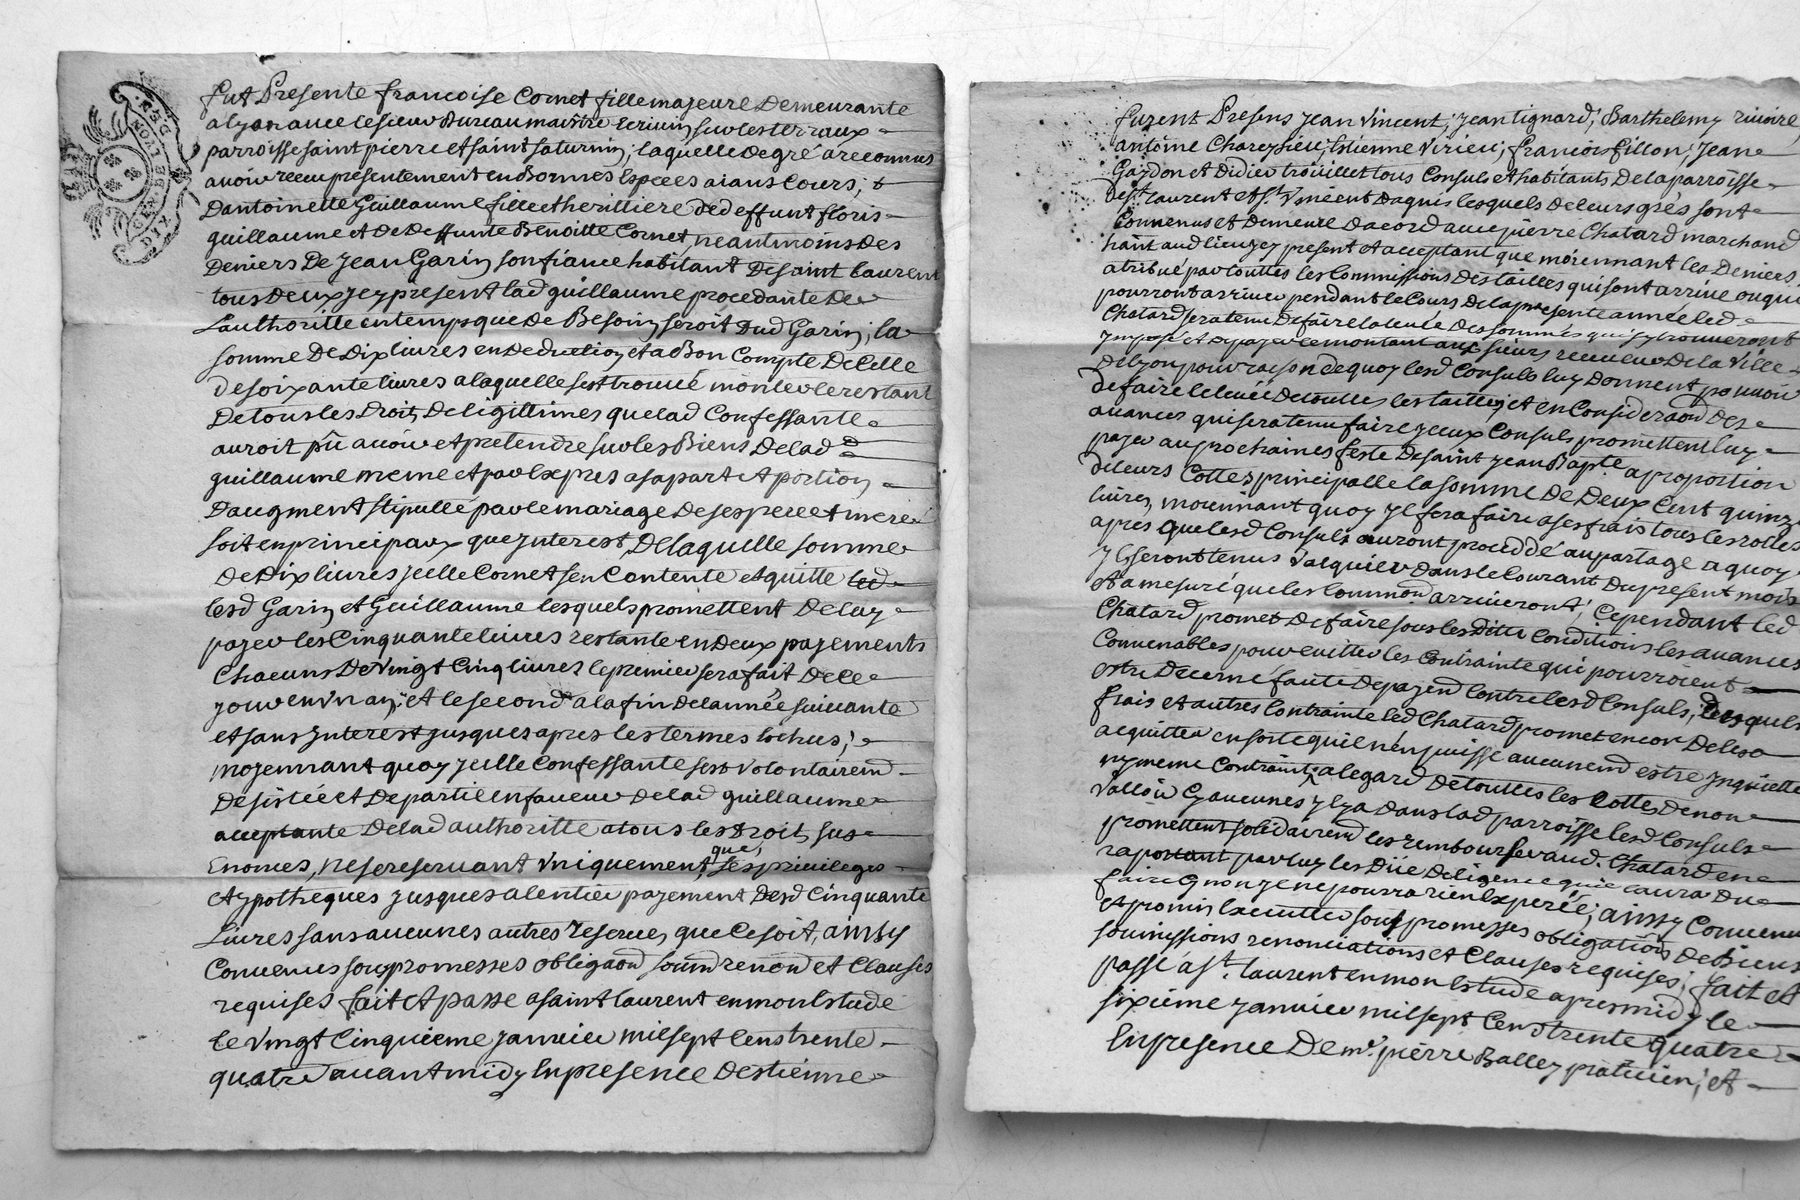 GEN. DE LYON
DIX DEN.
fut Presente francoise Cornet fille majeure Demeurante
a lyon avec le sieur Bureau maistre Ecrivin sur les terreaux
parroisse saint pierre et saint saturnin; laquelle de gré a reconnus
avoir receu presentement en Bonnes Especes aians Cours;
D'antoinette Guillaume fille et herittiere de deffunt floris
guillaume et de Deffunte Benoitte Cornet, neantmoins des
Deniers De Jean Garin son fiance habitant De saint Laurent
tous Deux Jcy present lad guillaume procedante De
L'authoritte en temps que De Besoin seroit Dud Garin; la
somme De Dix livres en Deduction et a Bon Compte De Celle
de soixante livres a laquelle s'est trouvé monter le restant
De tous les Droits De ligittimes que lad Confessante
auroit pû avoir et pretendre sur les Biens De lad
guillaume meme et par Expres a sa part et portion
D'augment stipullé par le mariage De ses pere et mere
soit en principaux que Jnterest De laquelle somme
De Dix livres Jcelle Cornet s'en Contente et quitte led
lesd Garin et Guillaume lesquels promettent De luy
payer les Cinquante livres restante en Deux payements
Chacuns De Vingt Cinq livres le premier sera fait De Ce
jour en Vn an; et le second a la fin de l'année suivante
et sans Jnterest jusques apres les termes Eschus;
moyennant quoy Jcelle Confessante s'est volontairemd
Desistée et Departie en faveur De lad guillaume
acceptante De lad authoritte a tous les Droits sus
Enoncés, ne se reservant Vniquement que ses privileges
et ypotheques jusques a l'entier payement Desd Cinquante
Livres sans aucunes autres reserves que Ce soit, ainsy
Convenus sous promesses obligaõn soumõn renõn et Clauses
requises fait et passé a saint laurent en mon Estude
le Vingt Cinquieme janvier mil sept Cens trente
quatre avant midy En presence D'estienne
furent Presens Jean Vincent; Jean tignard; Barthelemy rivoire
antoine Chareysieu; Estienne Virieu; francois fillon; Jean
Gaydon et Didier trouillet tous Consuls et habitants De la parroisse
De st. laurent et st. Vincent Dagnis lesquels de leurs grés sont
Convenus et Demeuré D'acord avec pierre Chatard marchand
hait aud lieu Jcy present et acceptant que moiennant les Deniers
atribué par touttes les Commissions Des tailles qui sont arrivé ou qui
pourront arriver pendant le Cours De la presente année led
Chatard sera tenu De faire la levée Des sommes qui s'y trouveront
Jmposé et De payer le montant aux sieurs receveur De la Ville
De lyon pour raison de quoy lesd Consuls luy Donnent pouvoir
de faire le levée De touttes les tailles et en Consideraõn Des
avances qui sera tenu faire Jceux Consuls promettent luy
payer au prochaines feste De saint Jean Bapte a proportion
de leurs Cottes principalle la somme De Deux Cent quinze
livres, moiennant quoy Jl fera faire a ses frais tous les rolles
apres que lesd Consuls auront procedé au partage a quoy
Jls seront tenus Vacquier dans le Courant Du present mois
et a mesuré que les Commõns arriveront; Cependant led
Chatard promet De faire sous les Ditte Conditions les avances
Convenables pour evitter les Contrainte qui pourroient
estre Decerné faute De payemd Contre lesd Consuls, Desquels
frais et autres Contrainte led Chatard promet encor De les
acquitter en sorte qu'il n'en puisse aucunemd estre Jnquietté
ny meme Contraint, a l'egard De touttes les Cottes De non
Valloir Gaucunes Jl y a Dans lad parroisse lesd Consuls
promettent solidairemd les rembourser aud. Chatard en
raportant par luy les Düe Deligence qu'il aura Du
faire G non Jl ne pourra rien Experée; ainsy Convenu
et promis Executter sous promesses obligations De Biens
soumissions renonciations et Clauses requises; fait et
passé a st. laurent en mon Estude apres midy le
sixieme janvier mil sept Cens trente quatre
En presence De me. pierre Balley praticien; et